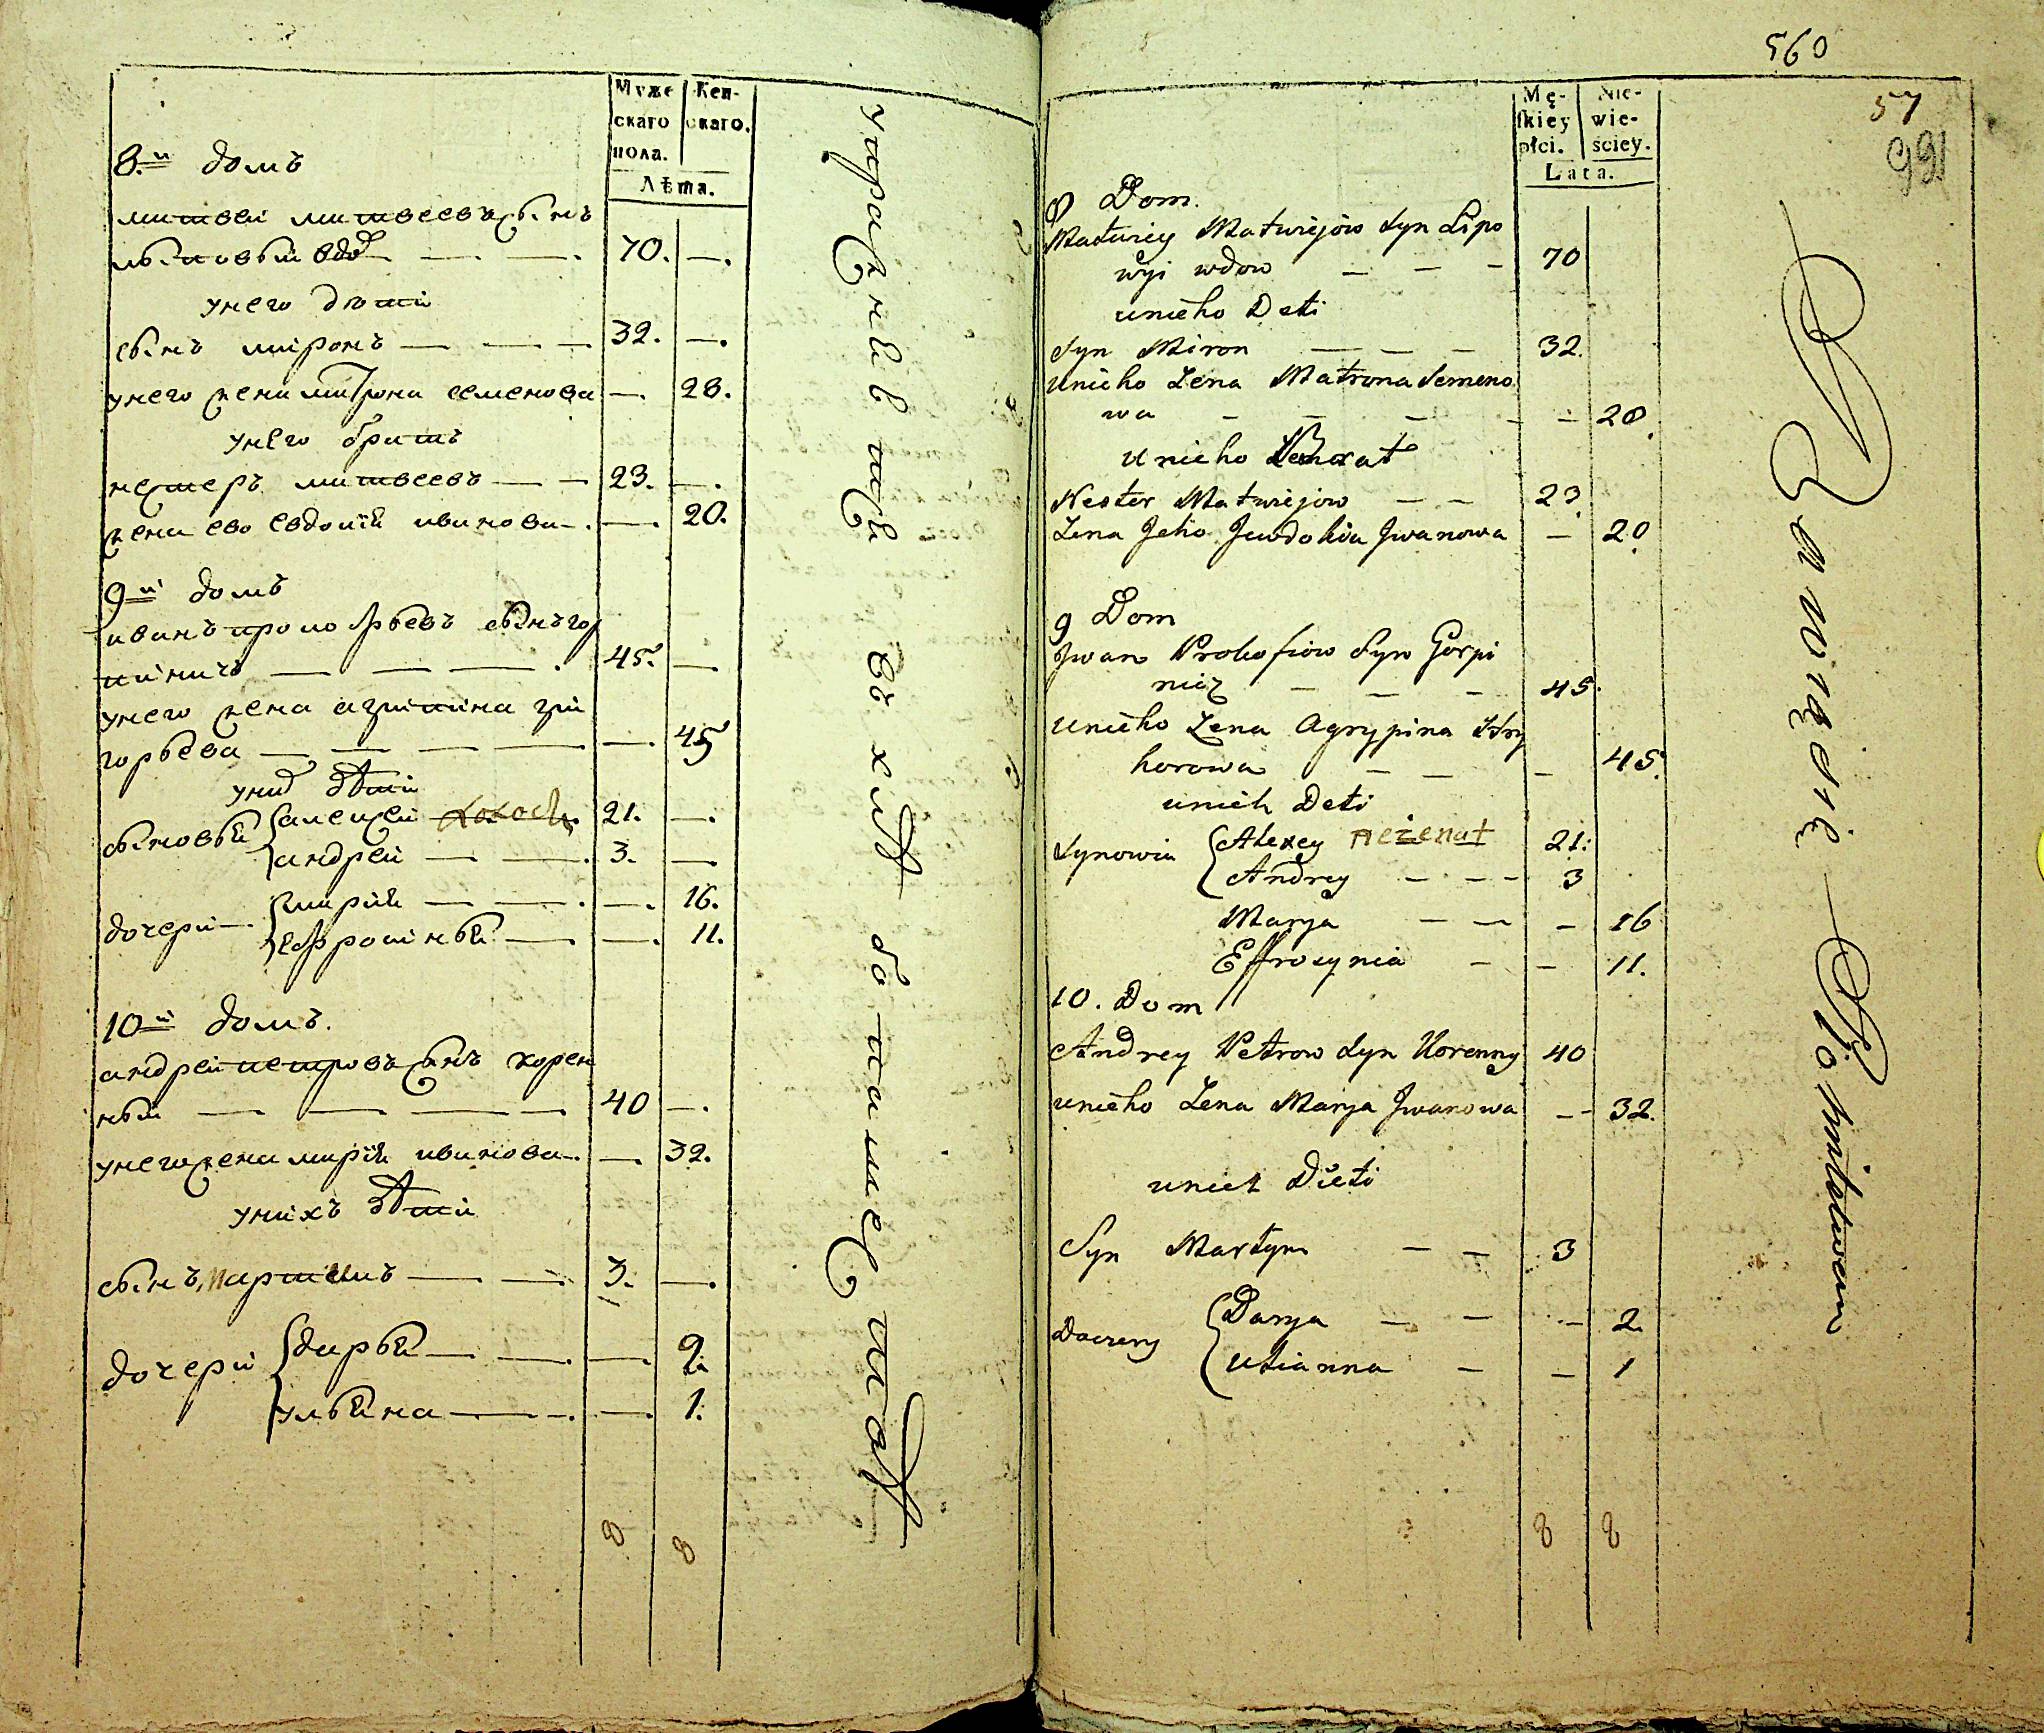 Муже Жен-
скаго скаго.
пола.
Лѣта.
8.й домъ
матвѣй матвеевъ сынъ
лыповый вдов 70. —.
унего дѣти
сынъ миронъ 32. —.
унего жена матрона семенова — 28.
унего братъ
нестеръ матвеевъ 23. —.
жена ево евдокія иванова — 20.
9й домъ
иванъ прокофьевъ сынъ гор
пиничъ 45. —
унего жена агрипина гри
горьева — 45
уних дѣти
сыновья алексѣй холост. 21. —.
андрей 3. —
дочери марія — 16.
ефросинья — 11.
10й домъ.
андрей петровъ сынъ корен
ный 40 —.
унего жена марія иванова — 32.
унихъ дѣти
сынъ мартинъ 3. —.
дочери дарья — 2.
ульяна — 1.
8 8
560
57
991
Mę- Nie-
skiey wie-
płci. sciey.
Lata.
8 Dom.
Matwiey Matwiejow Syn Lipo
wyi wdow 70
unieho Deti
Syn Miron 32.
unieho Zena Matrona Semeno
wa 28.
unieho Brat
Nester Matwiejow 23.
Zena Jeho Jewdokia Jwanowa 20.
9 Dom
Jwan Prokofiow Syn Gorpi
nicz 45.
unieho Zena Agrypina Hry
horowa 45.
unieh Deti
Synowia Alexey nieżenat 21.
Andrey 3
Marya 16
Effrosynia 11.
10. Dom
Andrey Petrow Syn Korenny 40
unieho Zena Marya Jwanowa 32.
unich Dieti
Syn Martyn 3
Doczery Darya 2.
Ulianna 1
8 8